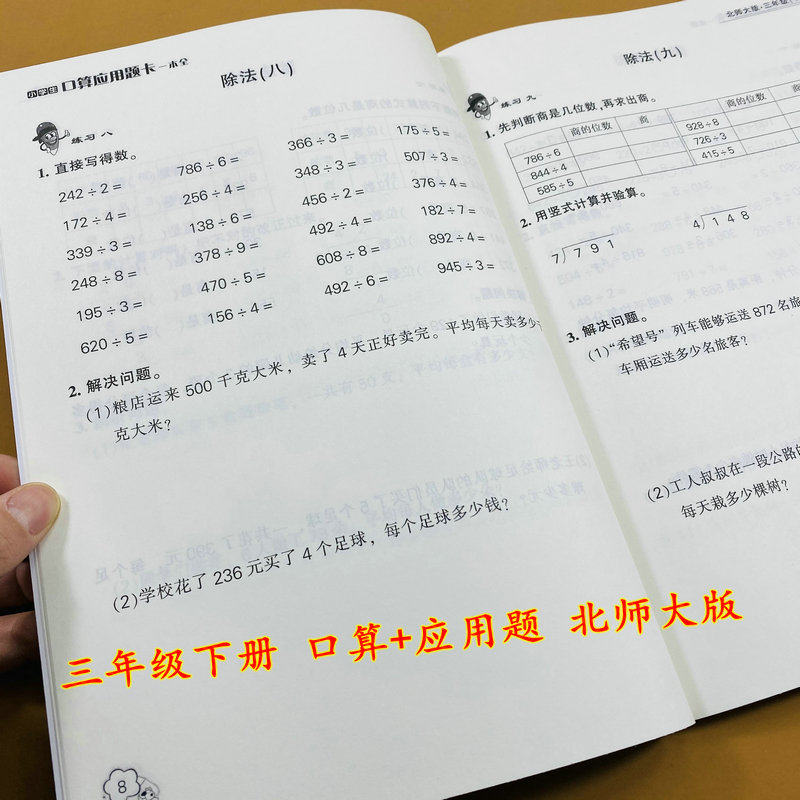 小学生 口算应用题卡 一本全
除法(八)
练习八
1. 直接写得数。
242÷2= 786÷6= 366÷3= 175÷5=
172÷4= 256÷4= 348÷3= 507÷3=
339÷3= 138÷6= 456÷2= 376÷4=
248÷8= 378÷9= 492÷4= 182÷7=
195÷3= 470÷5= 608÷8= 892÷4=
620÷5= 156÷4= 492÷6= 945÷3=
2. 解决问题。
(1)粮店运来 500 千克大米，卖了 4 天正好卖完。平均每天卖多少千
克大米？
(2)学校花了 236 元买了 4 个足球，每个足球多少钱？
8
北师大版·三年级
除法(九)
练习九
1. 先判断商是几位数，再求出商。
商的位数 商 商的位数
786÷6 928÷8
844÷4 726÷3
585÷5 415÷5
2. 用竖式计算并验算。
7)791 4)148
3. 解决问题。
(1)“希望号”列车能够运送 872 名旅
车厢运送多少名旅客？
(2)工人叔叔在一段公路的
每天栽多少棵树？
三年级下册 口算+应用题 北师大版